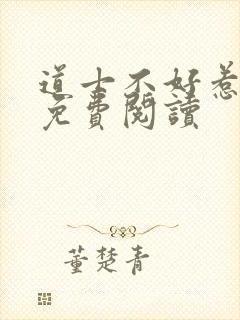 道士不好惹
免費閱讀
董楚青